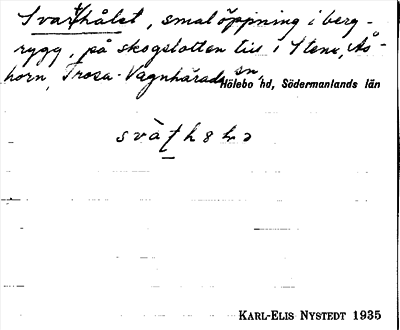 Svarthålet, smal öppning i berg-
rygg, på skogslotten till i Stene, Ås-
horn, Trosa-Vagnhärads sn,
Hölebo hd, Södermanlands län
KARL-ELIS NYSTEDT 1935